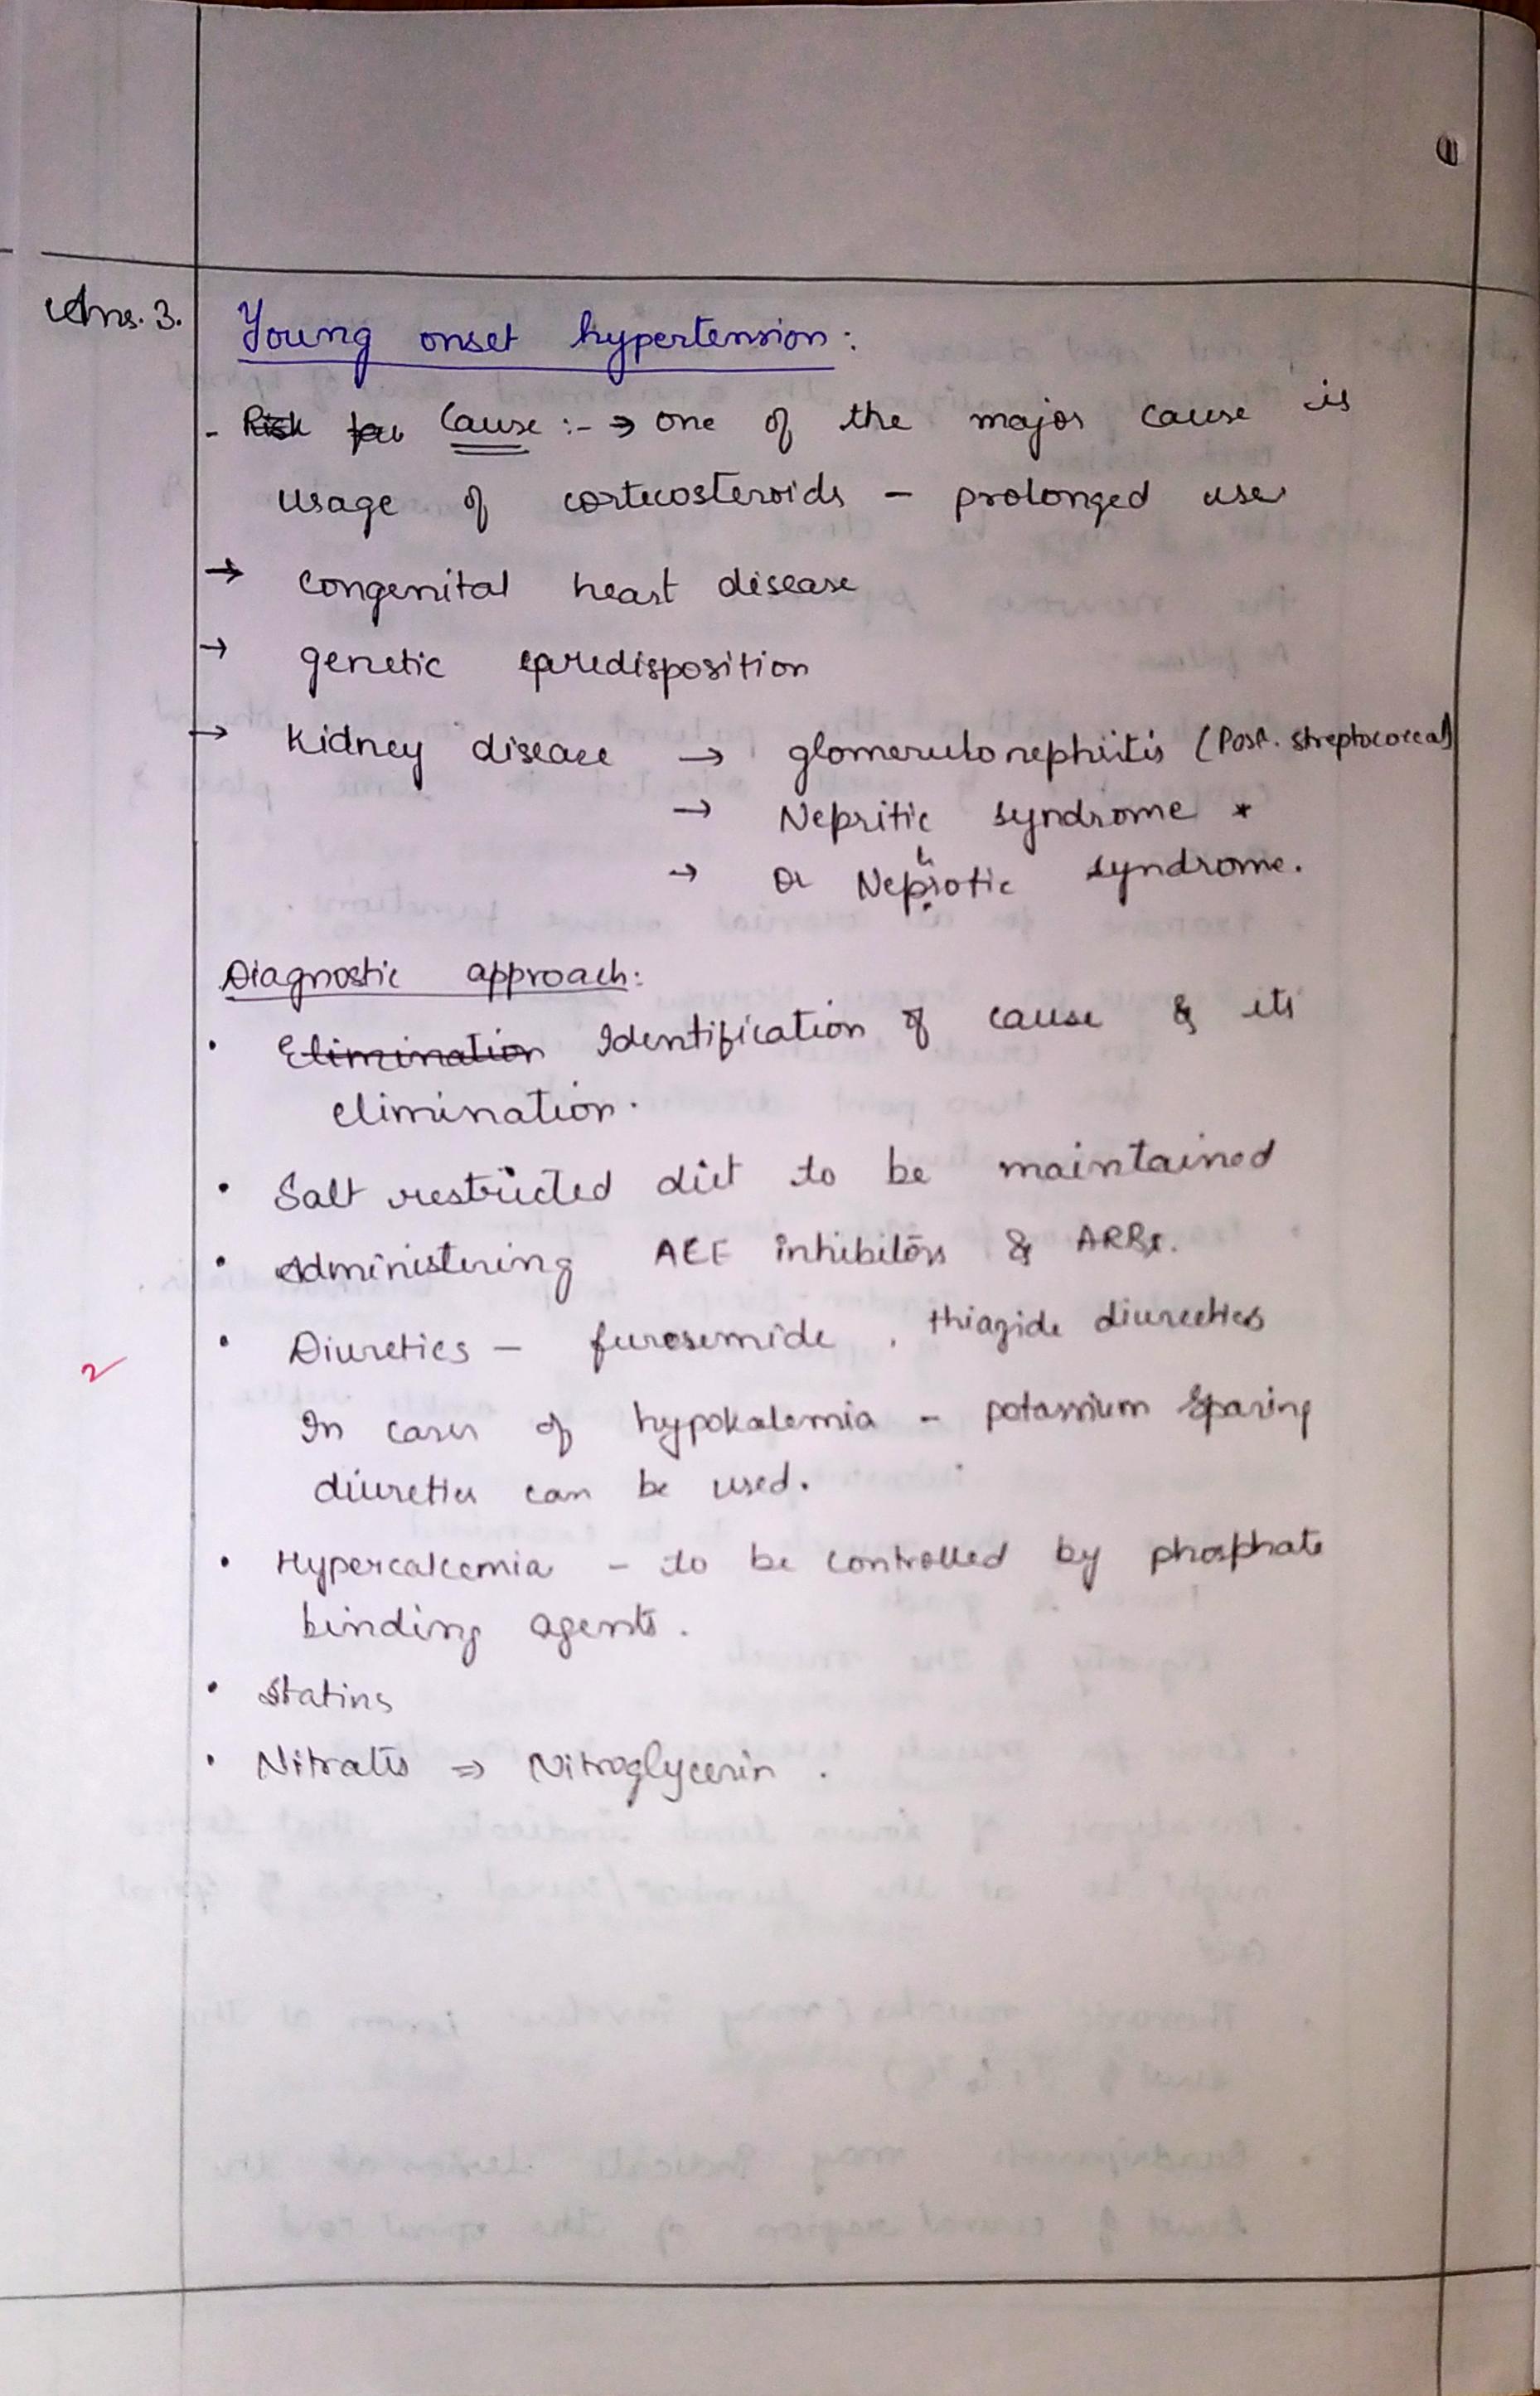 Ans. 3.
Young onset hypertension:
- Cause :- → one of the major cause is
usage of corticosteroids - prolonged use
→ congenital heart disease
→ genetic predisposition
→ Kidney disease → glomerulonephritis (Post. streptococcal)
→ Nepritic syndrome *
→ or Nephrotic syndrome.
Diagnostic approach:
• Elimination Identification of cause & its
elimination.
• Salt restricted diet to be maintained
• Administering ACE inhibitors & ARBs.
• Diuretics - furosemide, thiazide diurectics
2
In cases of hypokalemia - potassium sparing
diuretics can be used.
• Hypercalcemia - to be controlled by phosphate
binding agents.
• Statins
• Nitrates ⇒ Nitroglycerin.